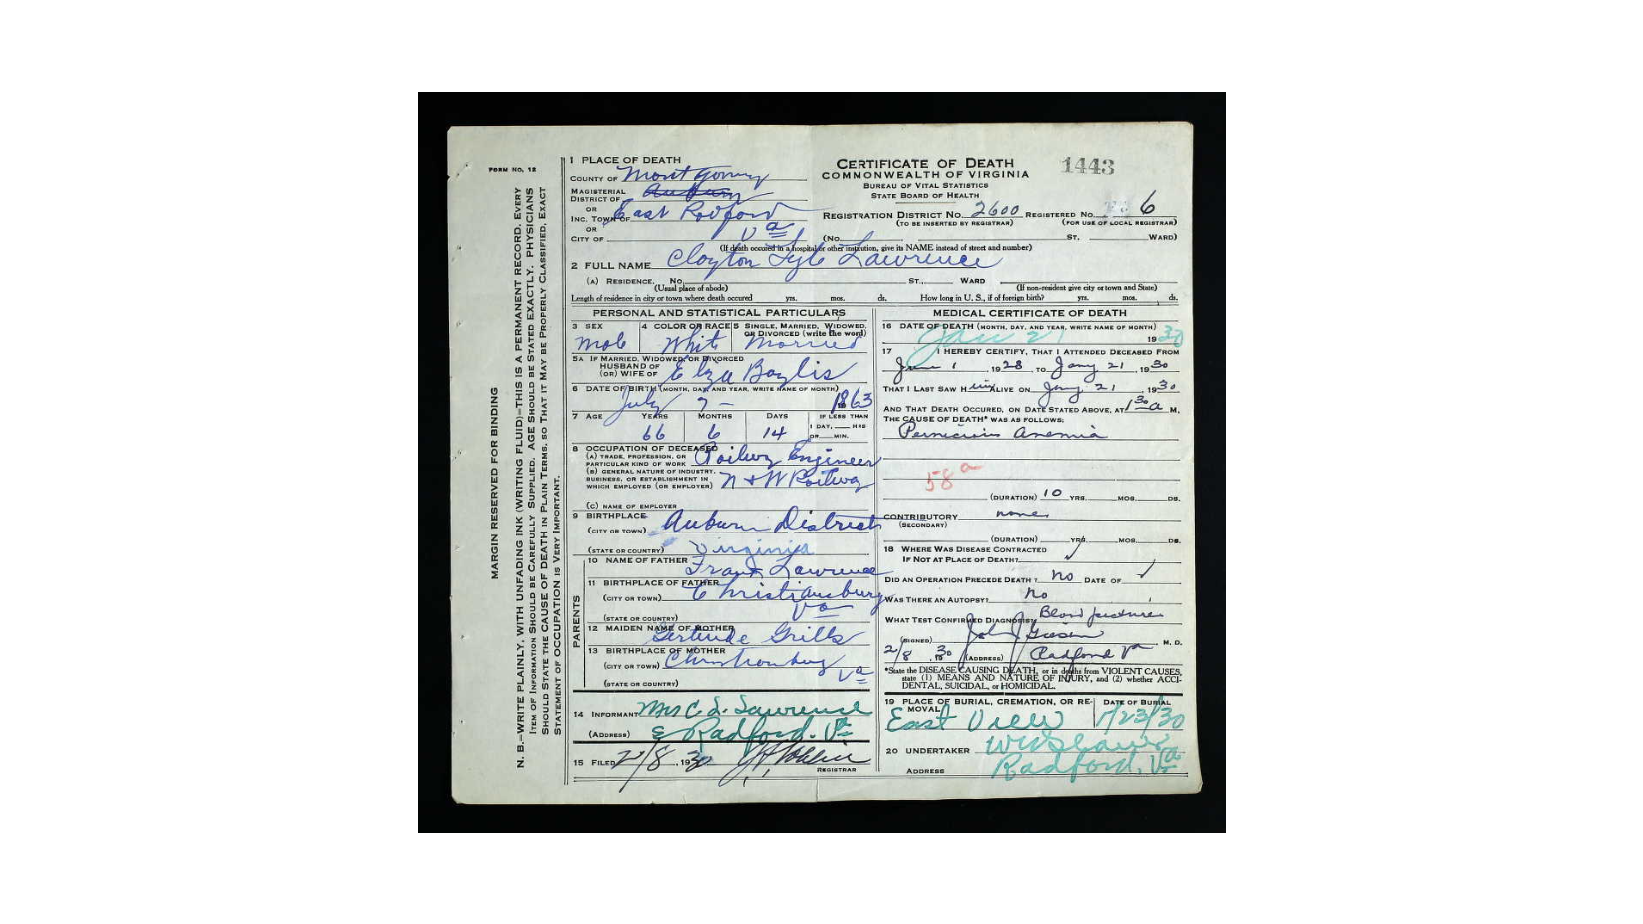 FORM NO. 12
MARGIN RESERVED FOR BINDING
N. B.—WRITE PLAINLY, WITH UNFADING INK (WRITING FLUID)—THIS IS A PERMANENT RECORD. EVERY
ITEM OF INFORMATION SHOULD BE CAREFULLY SUPPLIED. AGE SHOULD BE STATED EXACTLY. PHYSICIANS
SHOULD STATE THE CAUSE OF DEATH IN PLAIN TERMS, SO THAT IT MAY BE PROPERLY CLASSIFIED. EXACT
STATEMENT OF OCCUPATION IS VERY IMPORTANT.
1 PLACE OF DEATH
COUNTY OF Montgomery
MAGISTERIAL DISTRICT OF Auburn
OR
INC. TOWN OF East Radford
OR
CITY OF Va
CERTIFICATE OF DEATH
COMMONWEALTH OF VIRGINIA
BUREAU OF VITAL STATISTICS
STATE BOARD OF HEALTH
1443
REGISTRATION DISTRICT NO. 2600 REGISTERED NO. 6
(TO BE INSERTED BY REGISTRAR) (FOR USE OF LOCAL REGISTRAR)
(NO. ST. WARD)
(If death occured in a hospital or other institution, give its NAME instead of street and number)
2 FULL NAME Clayton Lyle Lawrence
(A) RESIDENCE. NO. ST., WARD
(Usual place of abode) (If non-resident give city or town and State)
Length of residence in city or town where death occured yrs. mos. ds. How long in U. S., if of foreign birth? yrs. mos. ds.
PERSONAL AND STATISTICAL PARTICULARS
3 SEX 4 COLOR OR RACE 5 SINGLE, MARRIED, WIDOWED, OR DIVORCED (write the word)
male White Married
5A IF MARRIED, WIDOWED, OR DIVORCED
HUSBAND OF
(OR) WIFE OF Elza Baylis
6 DATE OF BIRTH (MONTH, DAY, AND YEAR, WRITE NAME OF MONTH)
July 7— 1863
7 AGE YEARS MONTHS DAYS IF LESS THAN
66 6 14 1 DAY, HRS
OR MIN.
8 OCCUPATION OF DECEASED
(A) TRADE, PROFESSION, OR
PARTICULAR KIND OF WORK Railway Engineer
(B) GENERAL NATURE OF INDUSTRY,
BUSINESS, OR ESTABLISHMENT IN
WHICH EMPLOYED (OR EMPLOYER) N & W Railway
(C) NAME OF EMPLOYER
9 BIRTHPLACE
(CITY OR TOWN) Auburn District
(STATE OR COUNTRY) Virginia
PARENTS
10 NAME OF FATHER Frank Lawrence
11 BIRTHPLACE OF FATHER
(CITY OR TOWN) Christiansburg
(STATE OR COUNTRY) Va
12 MAIDEN NAME OF MOTHER Gertrude Grills
13 BIRTHPLACE OF MOTHER
(CITY OR TOWN) Christiansburg Va
(STATE OR COUNTRY)
14 INFORMANT Mrs C. L. Lawrence
(ADDRESS) E Radford. Va
15 FILED 2/8, 1930
REGISTRAR
MEDICAL CERTIFICATE OF DEATH
16 DATE OF DEATH (MONTH, DAY, AND YEAR, WRITE NAME OF MONTH)
Jan 21 1930
17 I HEREBY CERTIFY, THAT I ATTENDED DECEASED FROM
June 1, 1928 TO Jany 21, 1930
THAT I LAST SAW Him ALIVE ON Jany. 21, 1930
AND THAT DEATH OCCURED, ON DATE STATED ABOVE, AT 1 30 a M.
THE CAUSE OF DEATH* WAS AS FOLLOWS:
Pernicious anemia
58a
(DURATION) 10 YRS. MOS. DS.
CONTRIBUTORY none
(SECONDARY)
(DURATION) YRS. MOS. DS.
18 WHERE WAS DISEASE CONTRACTED
IF NOT AT PLACE OF DEATH?
DID AN OPERATION PRECEDE DEATH? no DATE OF
WAS THERE AN AUTOPSY? no
WHAT TEST CONFIRMED DIAGNOSIS? Blood pictures
(SIGNED) John J Giesen M. D.
2/8, 1930 (ADDRESS) Radford Va
*State the DISEASE CAUSING DEATH, or in deaths from VIOLENT CAUSES,
state (1) MEANS AND NATURE OF INJURY, and (2) whether ACCI-
DENTAL, SUICIDAL, or HOMICIDAL.
19 PLACE OF BURIAL, CREMATION, OR RE- DATE OF BURIAL
MOVAL
East View 1/23/30
20 UNDERTAKER
ADDRESS Radford, Va